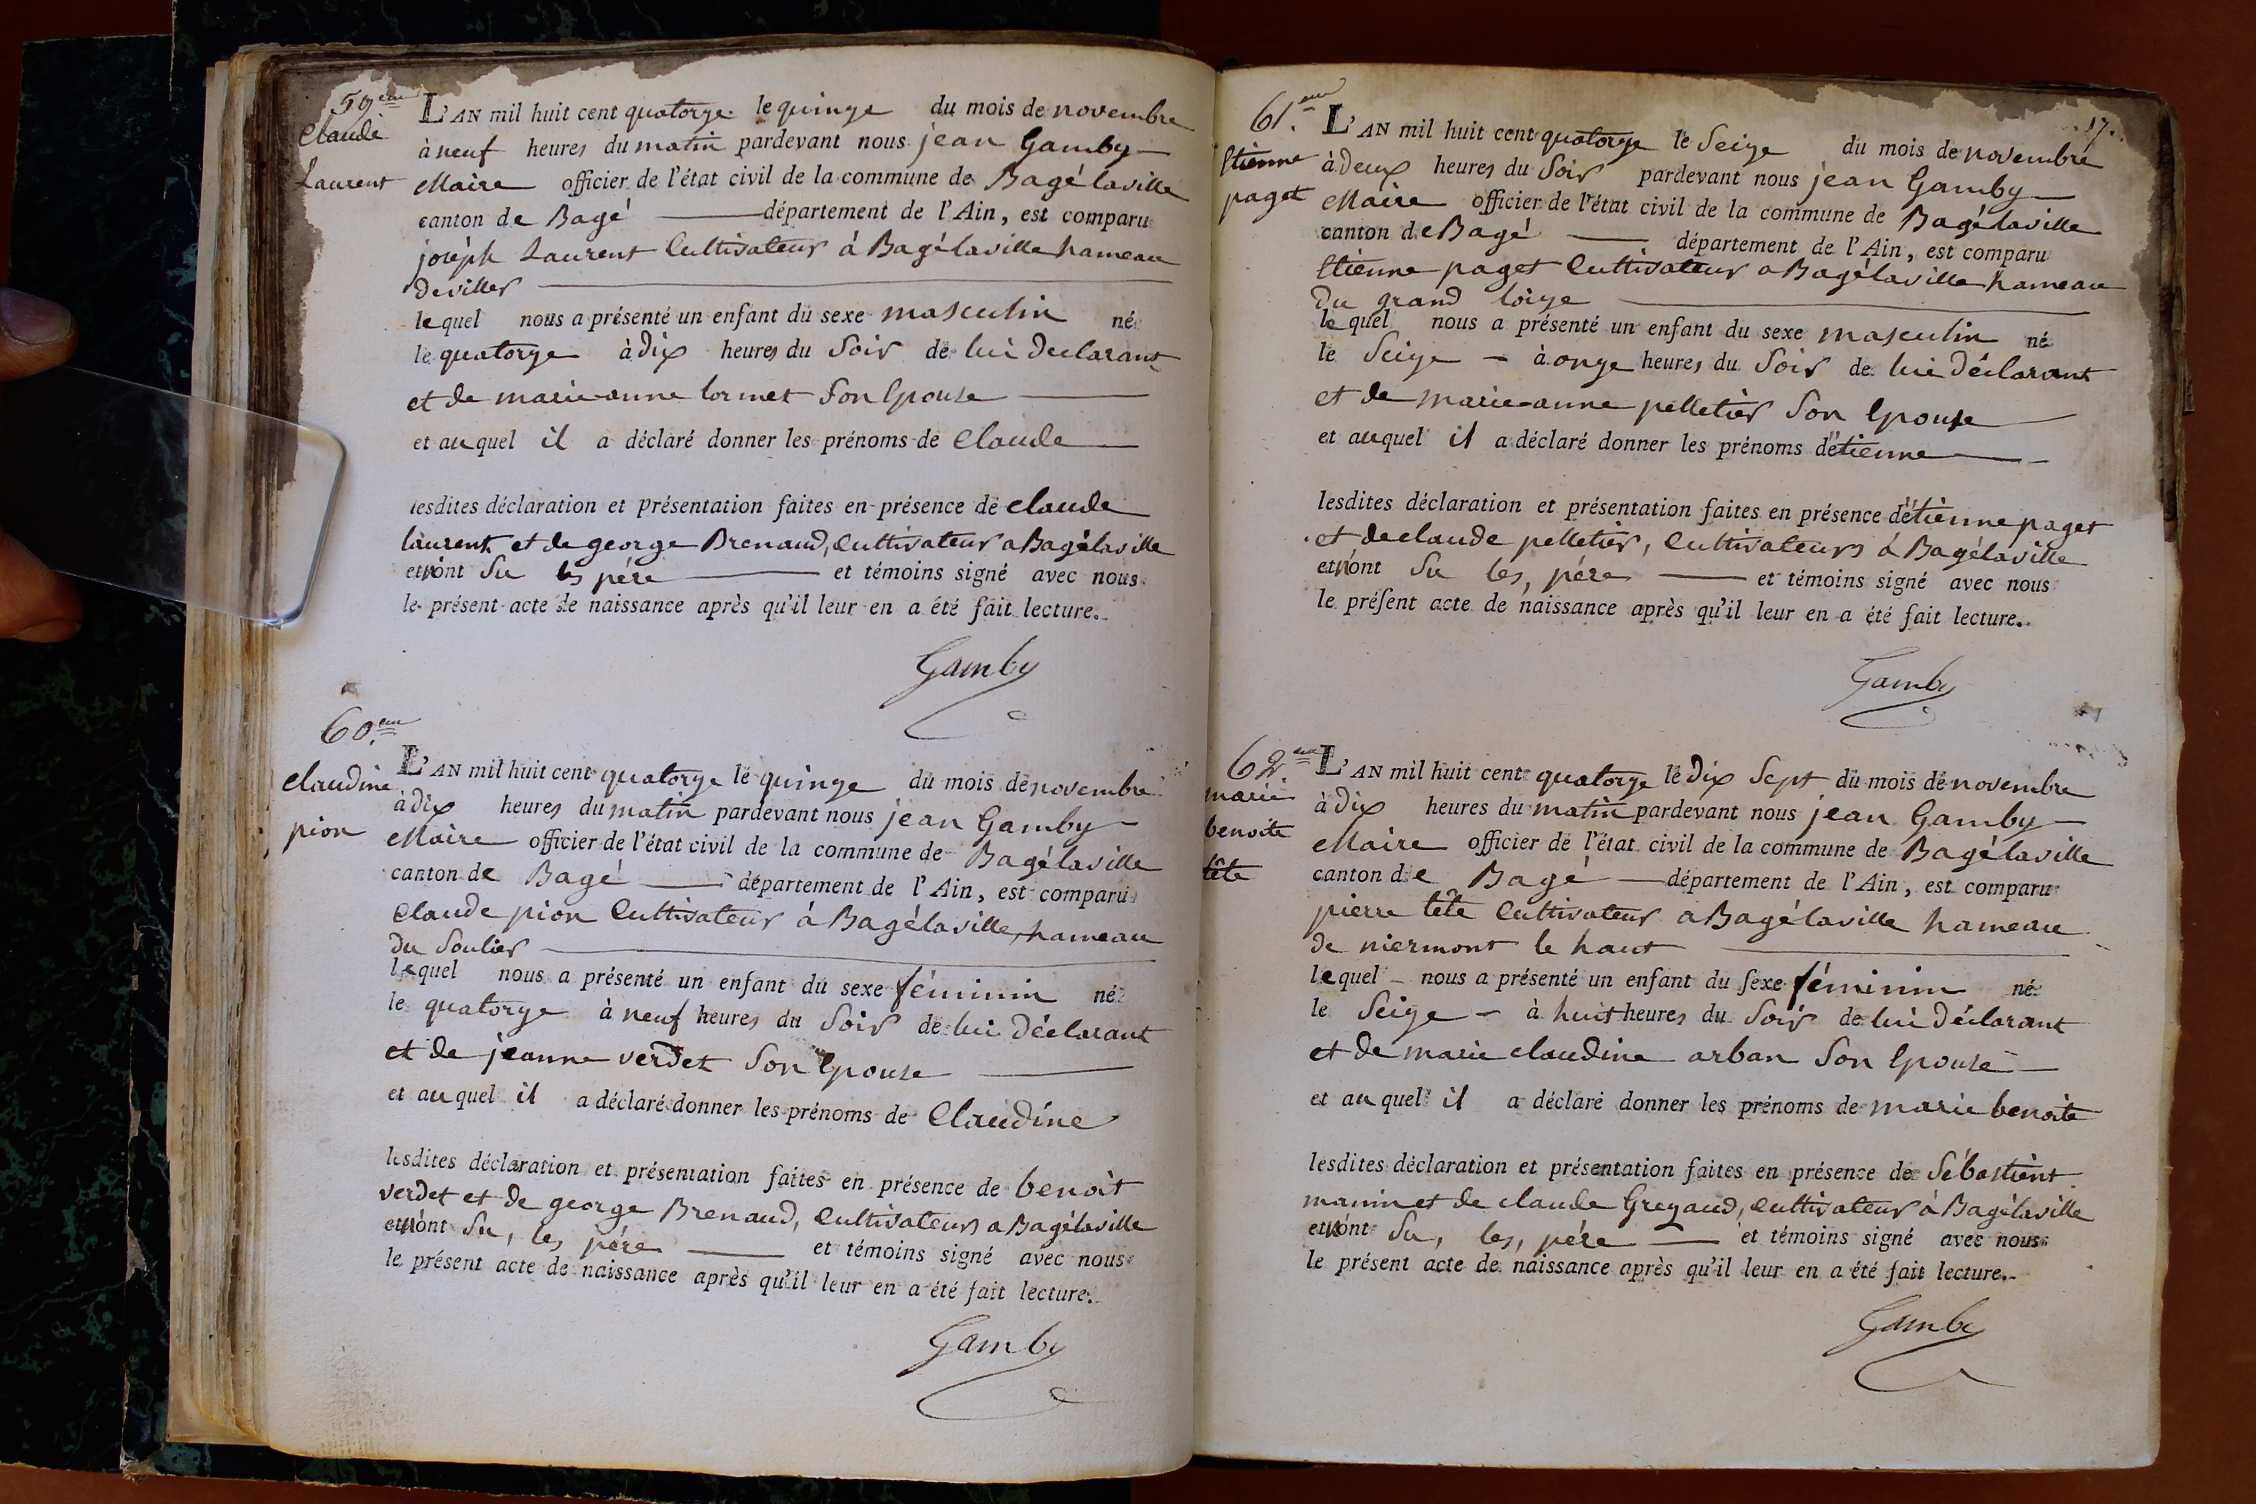 59.eme
Claude
Laurent
L'AN mil huit cent quatorze le quinze du mois de novembre
à neuf heures du matin pardevant nous jean Gamby
Maire officier de l'état civil de la commune de Bagélaville
canton de Bagé département de l'Ain, est comparu
joséph Laurent Cultivateur á Bagélaville hameau
de villes
lequel nous a présenté un enfant du sexe masculin né
le quatorze à dix heures du Soir de lui déclarant
et de marie anne lormet Son Epouse
et auquel il a déclaré donner les prénoms de Claude
lesdites déclaration et présentation faites en présence de claude
laurent et de george Brenaud, Cultivateur a Bagélaville
et n'ont Su les pére et témoins signé avec nous
le présent acte de naissance après qu'il leur en a été fait lecture.
Gamby
60.eme
Claudine
pion
L'AN mil huit cent quatorze le quinze du mois de novembre
à dix heures du matin pardevant nous jean Gamby
Maire officier de l'état civil de la commune de Bagélaville
canton de Bagé département de l'Ain, est comparu
Claude pion Cultivateur á Bagélaville, hameau
du Soulier
lequel nous a présenté un enfant du sexe féminin né
le quatorze à neuf heures du Soir de lui Déclarant
et de jeanne verdet Son Epouse
et auquel il a déclaré donner les prénoms de Claudine
lesdites déclaration et présentation faites en présence de benoît
verdet et de george Brenaud, Cultivateurs a Bagélaville
et n'ont Su, les pére et témoins signé avec nous
le présent acte de naissance après qu'il leur en a été fait lecture.
Gamby
17.
61.eme
Etienne
paget
L'AN mil huit cent quatorze le Seize du mois de novembre
à deux heures du Soir pardevant nous jean Gamby
Maire officier de l'état civil de la commune de Bagélaville
canton de Bagé département de l'Ain, est comparu
Etienne paget Cultivateur a Bagélaville hameau
du grand loize
lequel nous a présenté un enfant du sexe masculin né
le Seize à onze heures du Soir de lui déclarant
et de marie anne pelletier Son Epouse
et auquel il a déclaré donner les prénoms d'étienne
lesdites déclaration et présentation faites en présence d'étienne paget
et de claude pelletier, Cultivateurs á Bagélaville
et n'ont Su les, pére et témoins signé avec nous
le présent acte de naissance après qu'il leur en a été fait lecture.
Gamby
62.eme
marie
benoite
tête
L'AN mil huit cent quatorze le dix Sept du mois de novembre
à dix heures du matin pardevant nous jean Gamby
Maire officier de l'état civil de la commune de Bagélaville
canton de Bagé département de l'Ain, est comparu
pierre tête Cultivateur a Bagélaville hameau
de niermont le haut
lequel nous a présenté un enfant du sexe féminin né
le Seize à huit heures du Soir de lui déclarant
et de marie claudine arban Son Epouse
et auquel il a déclaré donner les prénoms de marie benoite
lesdites déclaration et présentation faites en présence de Sébastient
manin et de claude Grezaud, Cultivateur á Bagélaville
et n'ont Su, les, pére et témoins signé avec nous
le présent acte de naissance après qu'il leur en a été fait lecture.
Gamby